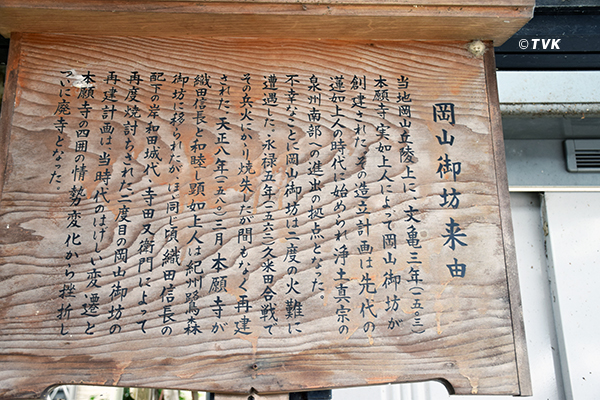 岡山御坊来由
当地岡山丘陵上に、文亀三年(一五〇三)
本願寺実如上人によって岡山御坊が
創建された。その造立計画は先代の
蓮如上人の時代に始められ浄土真宗の
泉州南部への進出の拠点となった。
不幸なことに岡山御坊は二度の火難に
遭遇した。永禄五年(一五六二)久米田合戦で
その兵火にかゝり焼失したが間もなく再建
された。天正八年(一五八〇)三月本願寺が
織田信長と和睦し顕如上人は紀州鷺ノ森
御坊に移られたがほぼ同じ頃織田信長の
配下の岸和田城代・寺田又右衛門によって
再度焼討ちされた。二度目の岡山御坊の
再建計画は、当時代のはげしい変遷と
本願寺の四囲の情勢変化から挫折し
ついに廃寺となった。
©TVK